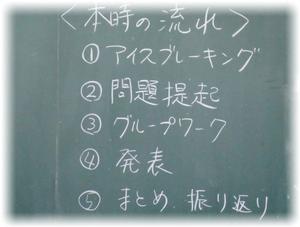 <本時の流れ>
①アイスブレーキング
②問題提起
③グループワーク
④発表
⑤まとめ.振り返り